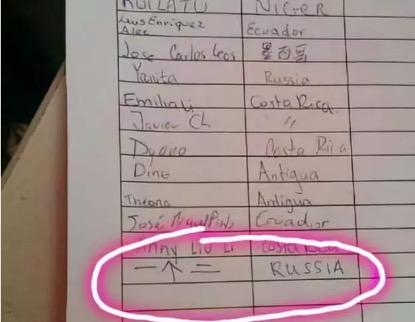 NIGER
Luis Enriquez
Alec Ecuador
Jose Carlos Leos 墨西哥
Yanita Russia
Emilia Li Costa Rica
Javier CL "
Dyana Costa Rica
Dino Antigua
Theona Antigua
José Ecuador
Liu Li Costa Rica
一个二 RUSSIA